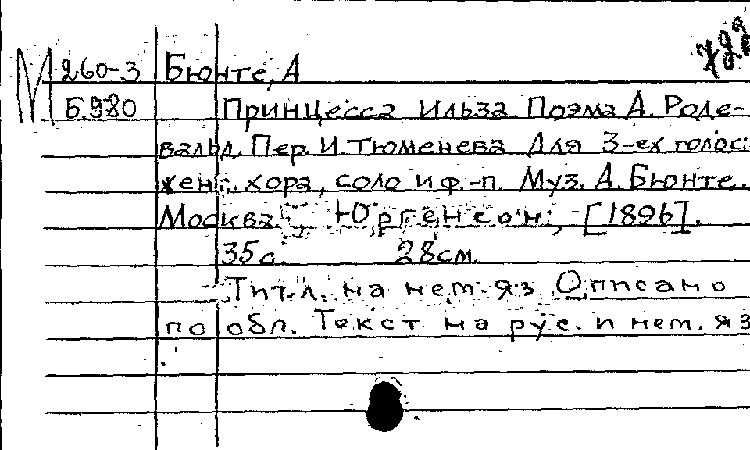 М 260-3 Бюнте, А
Б.980 Принцесса Ильза. Поэма А. Роде-
вальд. Пер. И. Тюменева. Для 3-ех голос.
женс. хора, соло и ф.-п. Муз. А. Бюнте.
Москва, Юргенсон, [1896].
35 с. 28 см.
Тит. л. на нем. яз. Описано
по обл. Текст на рус. и нем. яз